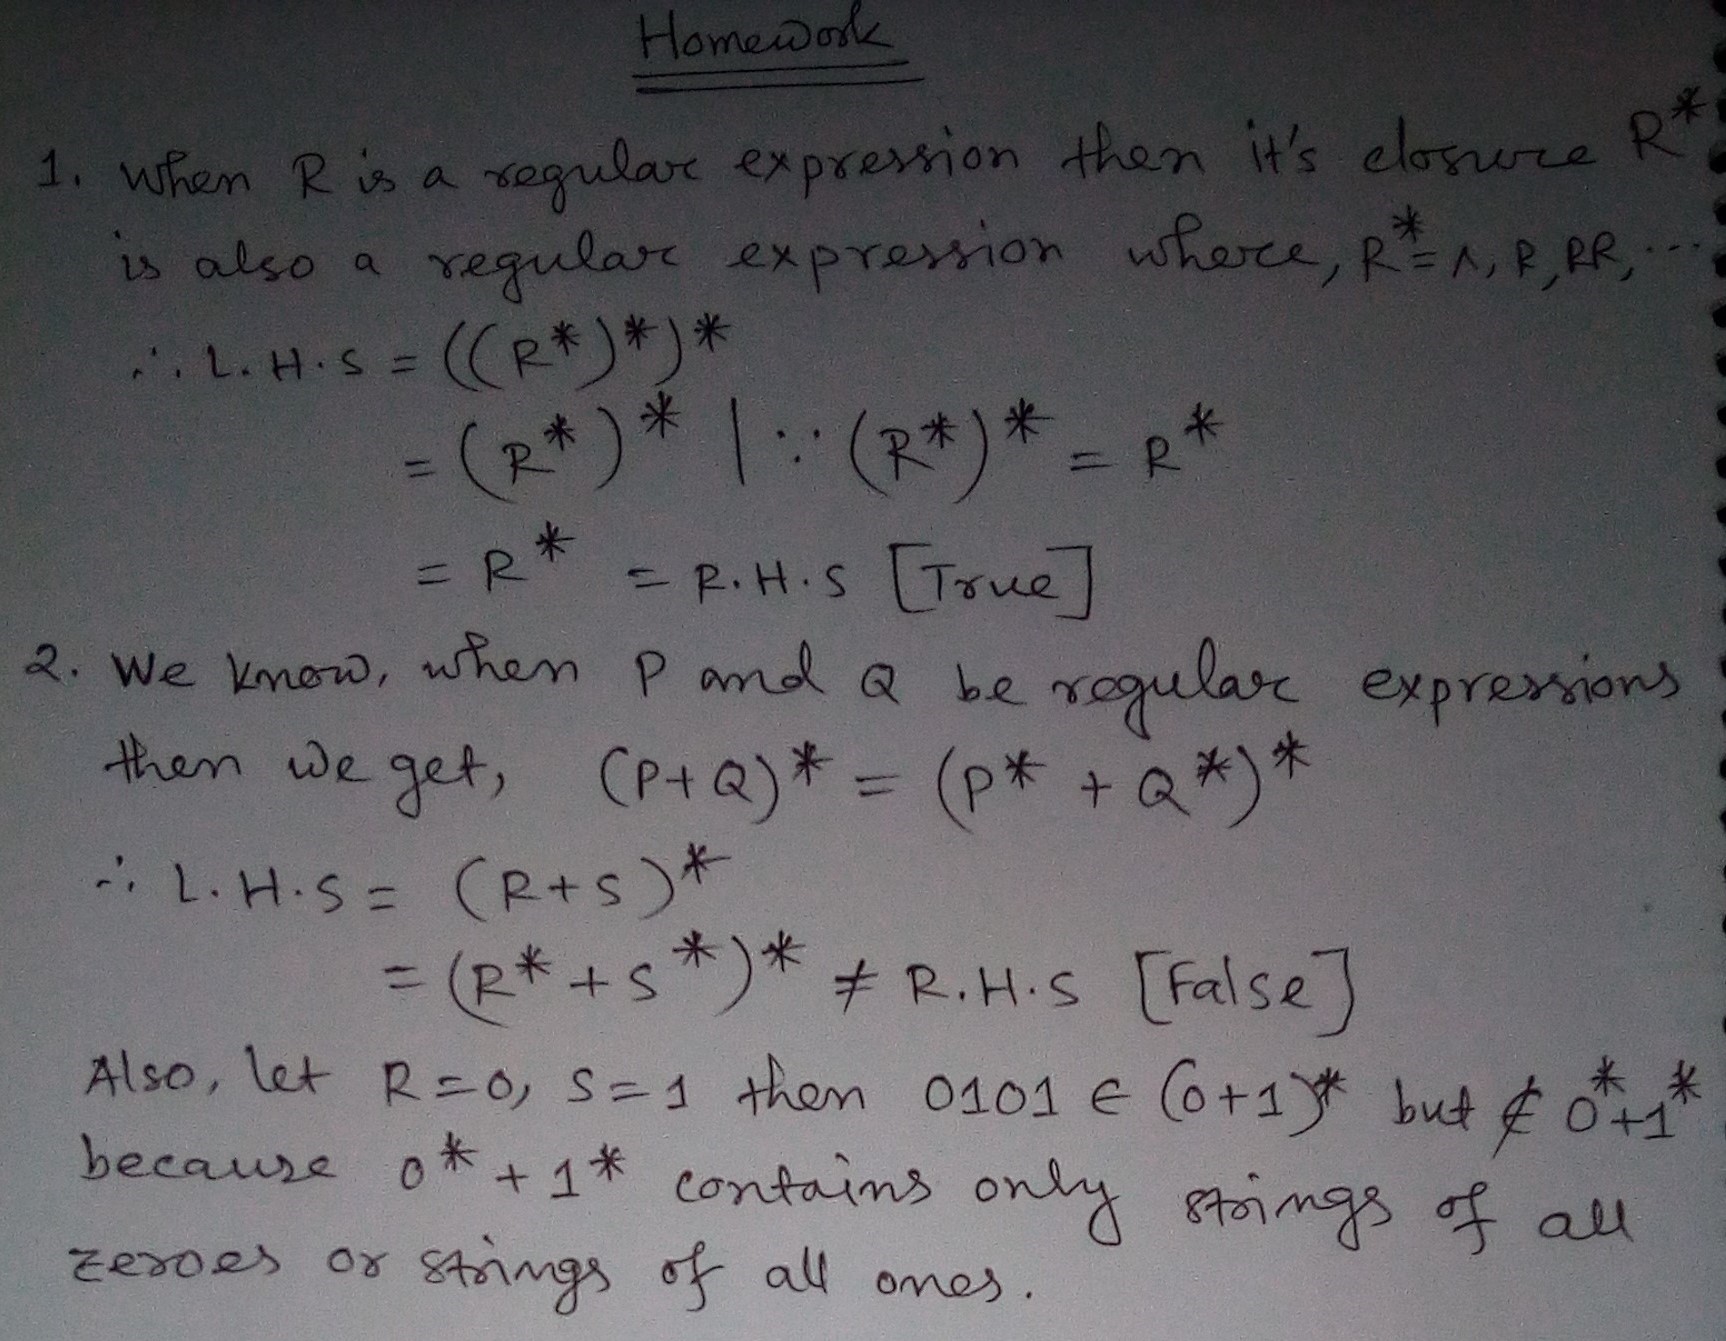 Homework
1. When R is a regular expression then it's closure R*
is also a regular expression where, R* = Λ, R, RR, ...
∴ L.H.S = ((R*)*)*
= (R*)* | ∵ (R*)* = R*
= R* = R.H.S [True]
2. We know, when P and Q be regular expressions
then we get, (P+Q)* = (P* + Q*)*
∴ L.H.S = (R+S)*
= (R* + S*)* ≠ R.H.S [False]
Also, let R=0, S=1 then 0101 ∈ (0+1)* but ∉ 0*+1*
because 0* + 1* contains only strings of all
zeroes or strings of all ones.